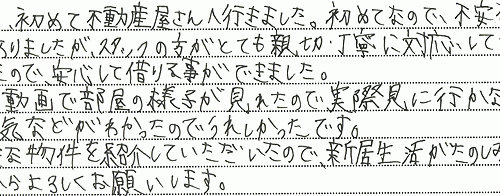 初めて不動産屋さんへ行きました。初めてなので、不安
ありましたが、スタッフの方がとても親切・丁寧に対応して
ので、安心して借りる事ができました。
動画で部屋の様子が見れたので、実際見に行かな
気などがわかったのでうれしかったです。
な物件を紹介していただいたので、新居生活がたのしみ
よろしくお願いします。